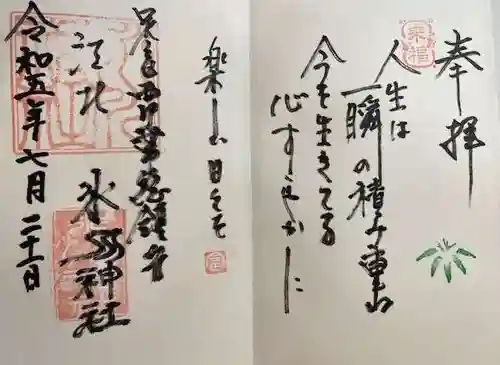 奉拝
人生は
一瞬の積み重ね
今を生きてる
心すこやかに
楽しい日々を
江北
氷川神社
令和五年七月二十一日